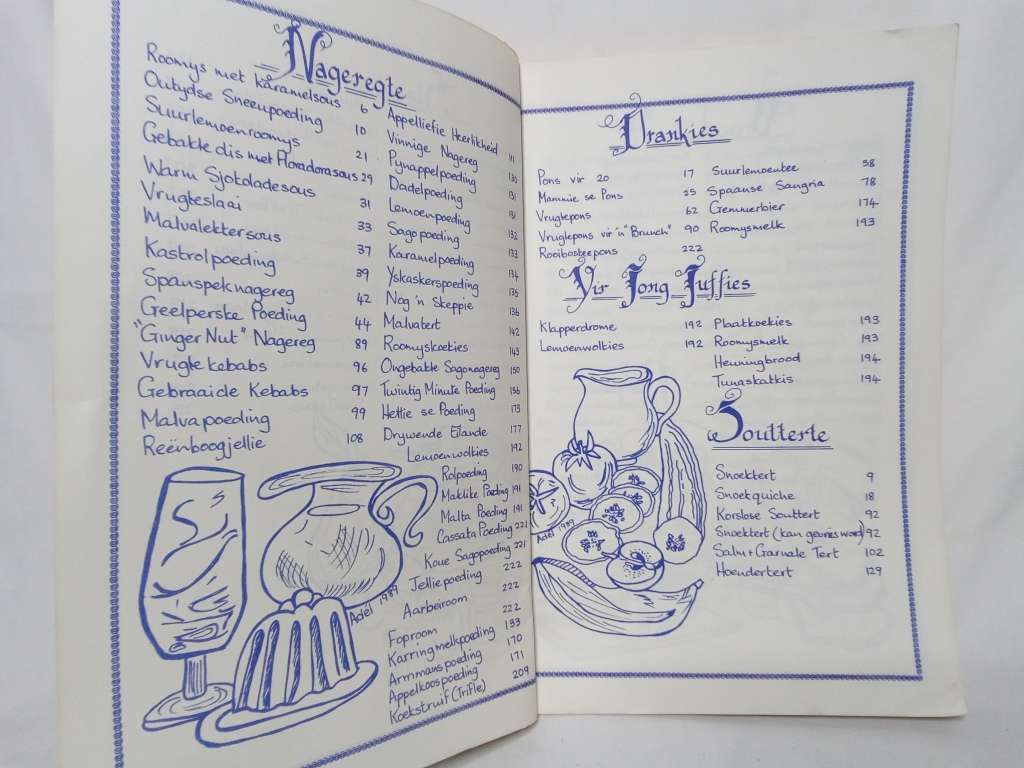 Nageregte
Roomys met karamelsous 6
Outydse Sneeupoeding 10
Suurlemoenroomys 21
Gebakte dis met Floradorasous 29
Warm Sjokoladesous 31
Vrugteslaai 33
Malvalektersous 37
Kastrolpoeding 39
Spanspeknagereg 42
Geelperske Poeding 44
"Ginger Nut" Nagereg 89
Vrugte kebabs 96
Gebraaide Kebabs 97
Malvapoeding 99
Reënboogjellie 108
Appelliefie Heerlikheid 111
Vinnige Nagereg 130
Pynappelpoeding 131
Dadelpoeding 131
Lemoenpoeding 132
Sagopoeding 133
Karamelpoeding 134
Yskaskerspoeding 135
Nog 'n Skeppie 136
Malvatert 142
Roomyskoekies 143
Ongebakte Sagonagereg 150
Twintig Minute Poeding 156
Hettie se Poeding 173
Drywende Eilande 177
Lemoenwolkies 192
Rolpoeding 190
Maklike Poeding 191
Malta Poeding 191
Cassata Poeding 221
Koue Sagopoeding 221
Jelliepoeding 222
Aarbeiroom 222
Foproom 222
Karringmelkpoeding 133
Armmanspoeding 170
Appelkoospoeding 171
Koekstruif (Trifle) 209
Adèl 1989
Drankies
Pons vir 20 17
Mammie se Pons 55
Vrugtepons 62
Vrugtepons vir 'n "Brunch" 90
Rooibosteepons 222
Suurlemoentee 58
Spaanse Sangria 78
Gemmerbier 174
Roomysmelk 193
Vir Jong Juffies
Klapperdrome 192
Lemoenwolkies 192
Plaatkoekies 193
Roomysmelk 193
Heuningbrood 194
Tunaskatkis 194
Soutterte
Snoektert 9
Snoekquiche 18
Korslose Souttert 92
Snoektert (kan gevries word) 92
Salm + Garnale Tert 102
Hoendertert 129
Adèl 1989